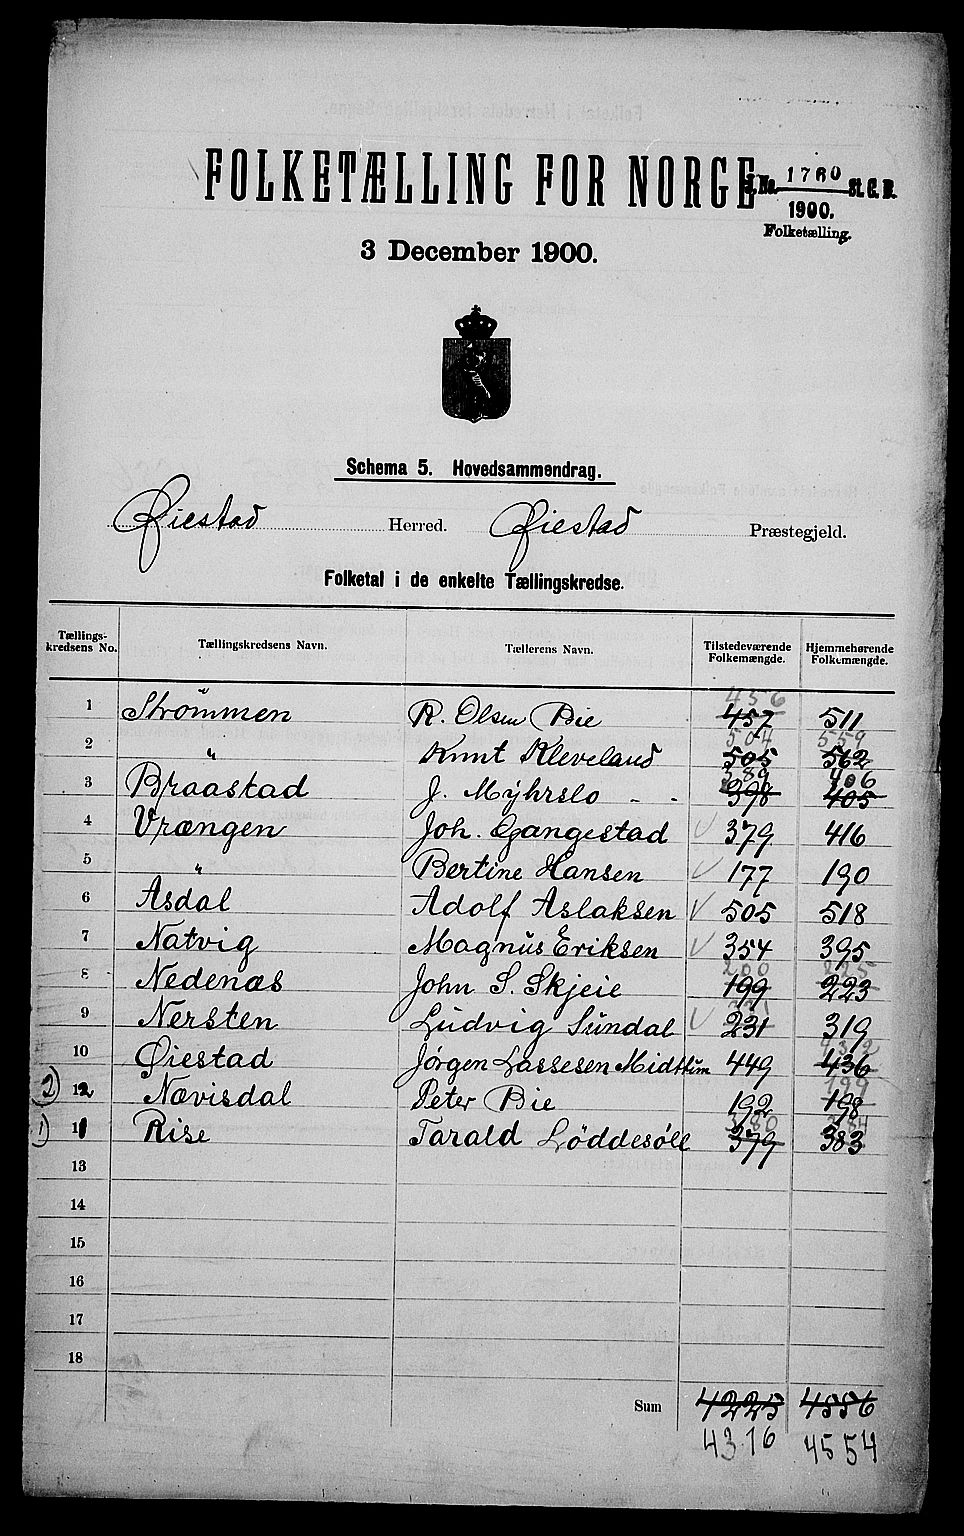 FOLKETÆLLING FOR NORGE
J. No. 1760 St. C. B.
1900.
Folketælling.
3 December 1900.
Schema 5. Hovedsammendrag.
Øiestad Herred. Øiestad Præstegjeld.
Folketal i de enkelte Tællingskredse.
Tællings-kredsens No. Tællingskredsens Navn. Tællerens Navn. Tilstedeværende Folkemængde. Hjemmehørende Folkemængde.
456
1 Strømmen R. Olsen Bie 457 511
504 559
2 " Knut Kleveland 505 562
389 406
3 Braastad J. Myhrslo - - 398 405
4 Vrængen Joh. Gangestad √ 379 416
5 " Bertine Hansen √ 177 190
6 Asdal Adolf Aslaksen √ 505 518
7 Natvig Magnus Eriksen √ 354 395
200 225
8 Nedenæs John S. Skjeie 199 223
9 Nersten Ludvig Sundal √ 231 319
10 Øiestad Jørgen Lassesen Midttun 449 436
199
2) 12 Nævisdal Peter Bie 192 198
380 384
1) 11 Rise Tarald Løddesøll 379 383
13
14
15
16
17
18
Sum 4225 4556
4316 4554